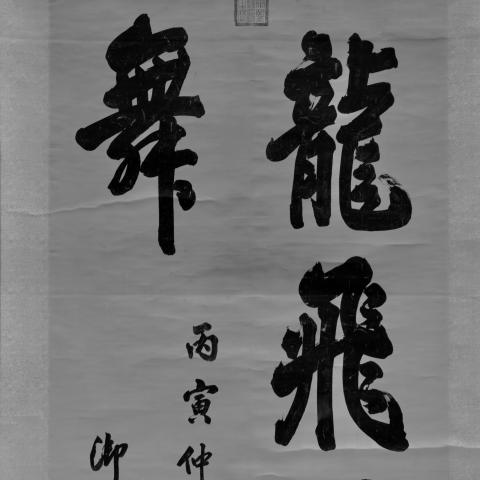 龍飛
舞
丙寅仲
御